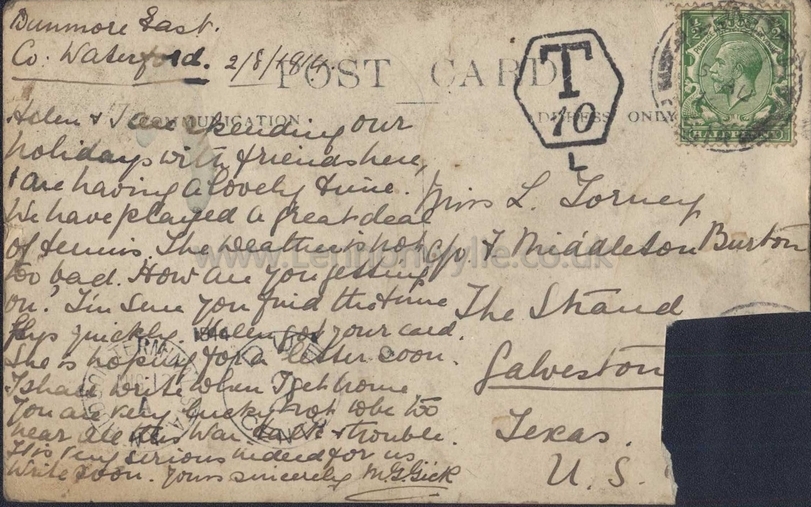 Dunmore East.
Co. Waterford. 2/8/1914.
POST CARD
COMMUNICATION ADDRESS ONLY
T
10
L
HALFPENNY
Helen & I are spending our
holidays with friends here,
& are having a lovely time.
We have played a great deal
of tennis. The weather is not
too bad. How are you getting
on? I'm sure you find the time
flys quickly. Helen got your card.
She is hoping for a letter soon.
I shall write when I get home
You are very lucky not to be too
near all this War talk & trouble.
It is very serious indeed for us
Write soon. Yours sincerely M.G. Gick
Miss L. Torney
c/o. F Middleton Burton
The Strand
Galveston
Texas.
U.S.
www.Lennonwylie.co.uk
1914